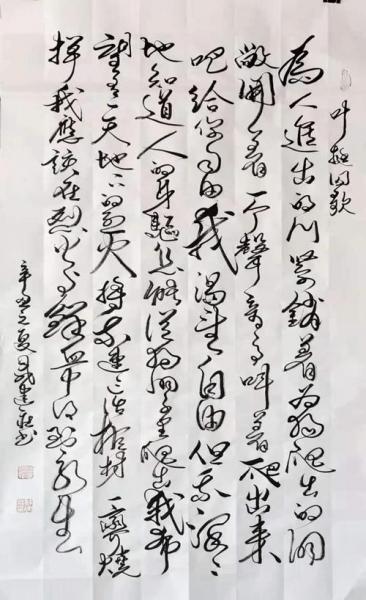 叶挺囚歌
為人進出的门紧鎖着为狗爬出的洞
敞開着一个聲音高叫着爬出来
吧给你自由我渴望自由但我深深
地知道人的身軀怎能從狗洞里爬出我希
望有一天地下的烈火将我連這活棺材一齊燒
掉我應該在烈火与熱血中得到永生
辛丑之夏建书